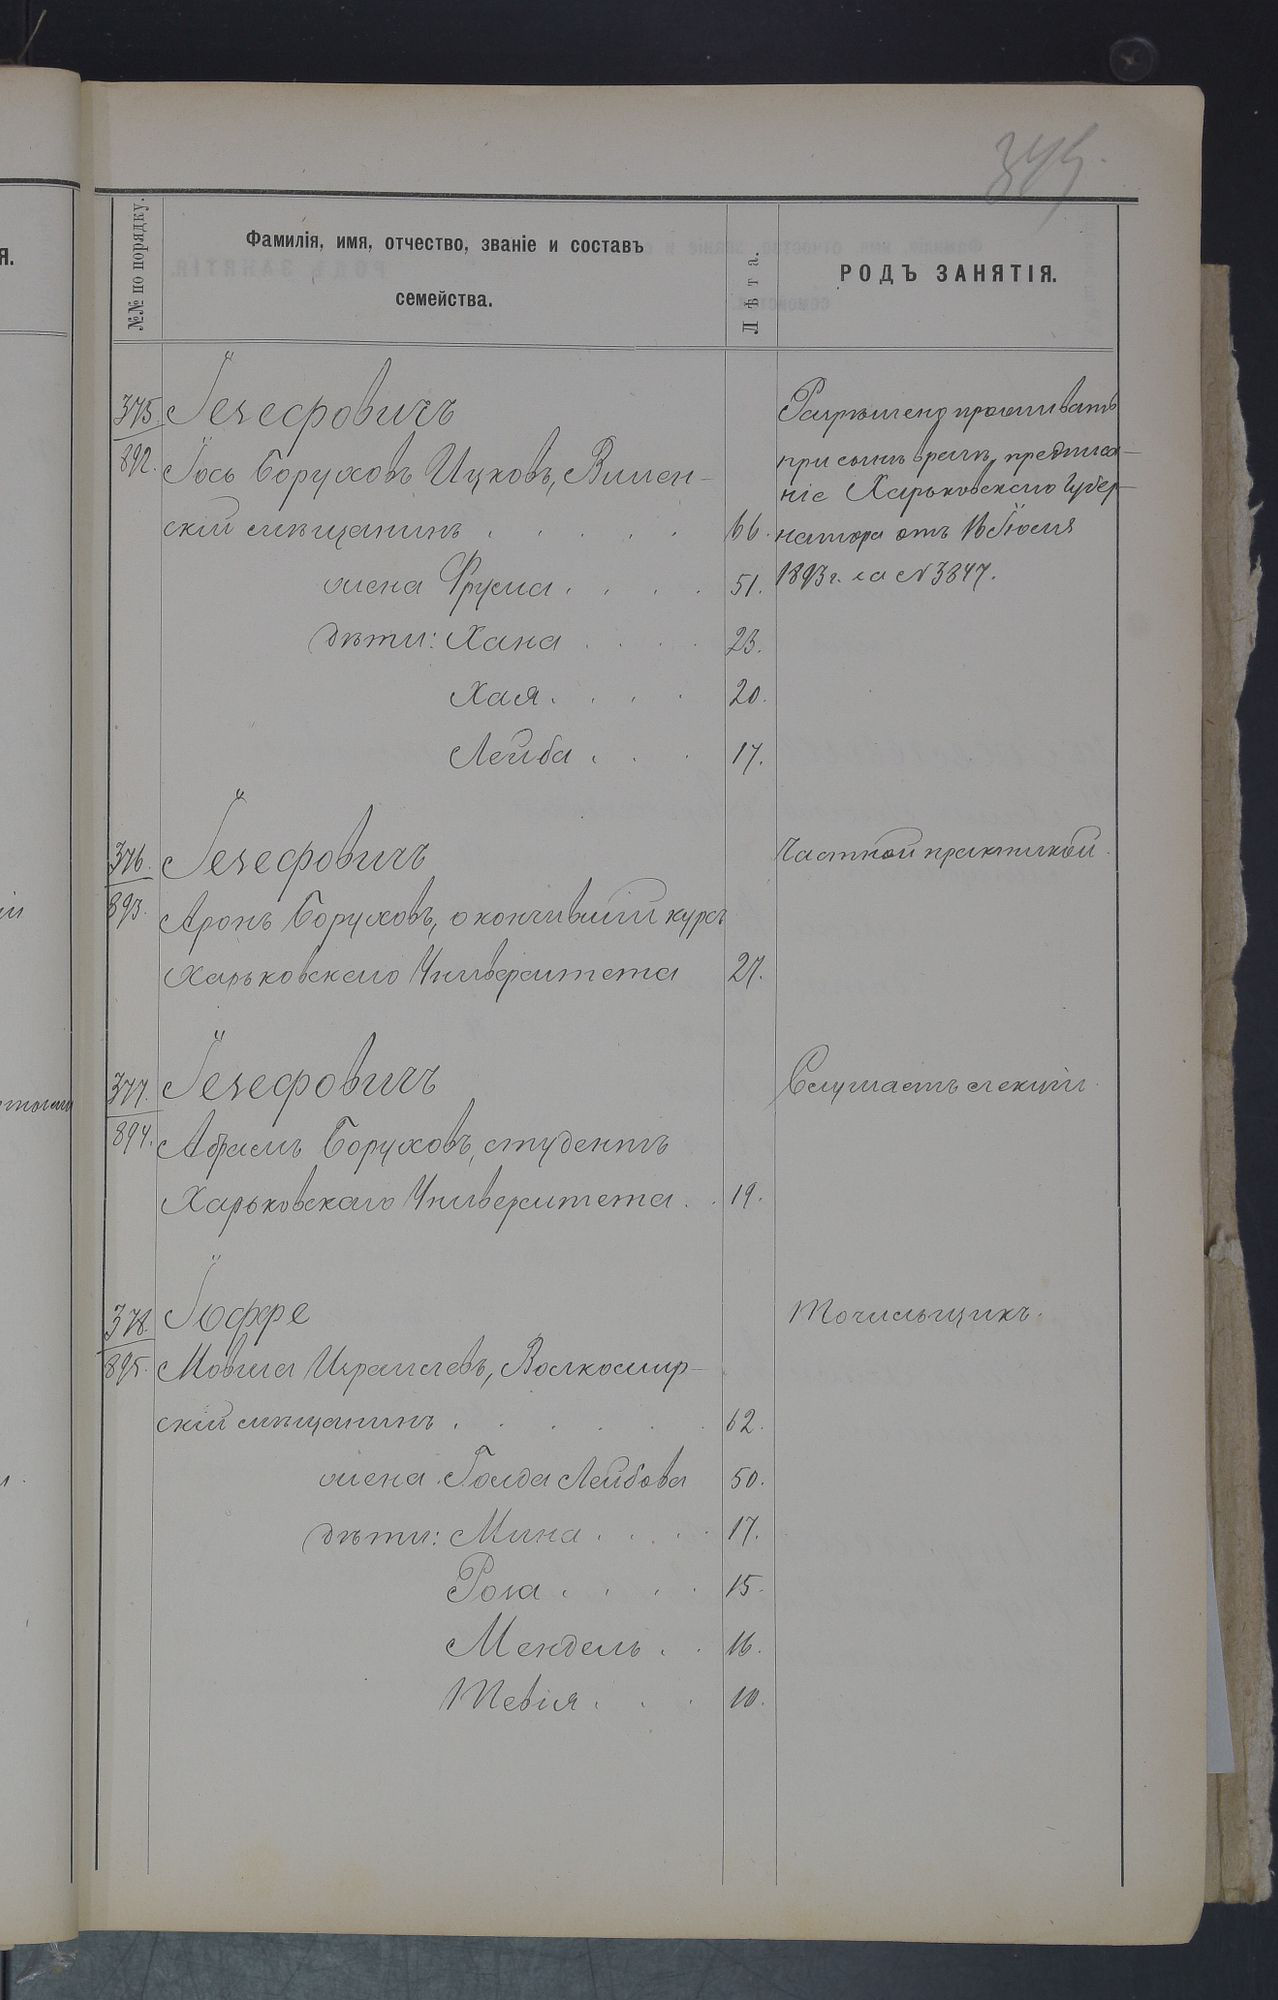 345.
№№ по порядку.
Фамилія, имя, отчество, званіе и составъ
семейства.
Лѣта.
РОДЪ ЗАНЯТІЯ.
Я.
375.
892.
Іезефовичъ
Іось Боруховъ Ицковъ, Вилен-
скій мѣщанинъ 66.
жена Фрума 51.
дѣти: Хана 23.
Хая 20.
Лейба 17.
Разрѣшено проживать
при сынѣ врачѣ, предписа-
ніе Харьковскаго Губер-
натора отъ Іюля
1893 г. за № 3847.
376.
893.
Іезефовичъ
Аронъ Боруховъ, окончившій курсъ
Харьковскаго Университета 27.
Частной практикой.
377.
894.
Іезефовичъ
Абрамъ Боруховъ, студентъ
Харьковскаго Университета 19.
Слушаетъ лекціи.
378.
895.
Іоффе
Мовша Израилевъ, Волкомир-
скій мѣщанинъ 62.
жена Голда Лейбова 50.
дѣти: Мина 17.
Роза 15.
Мендель 16.
Тевія 10.
Точильщикъ.